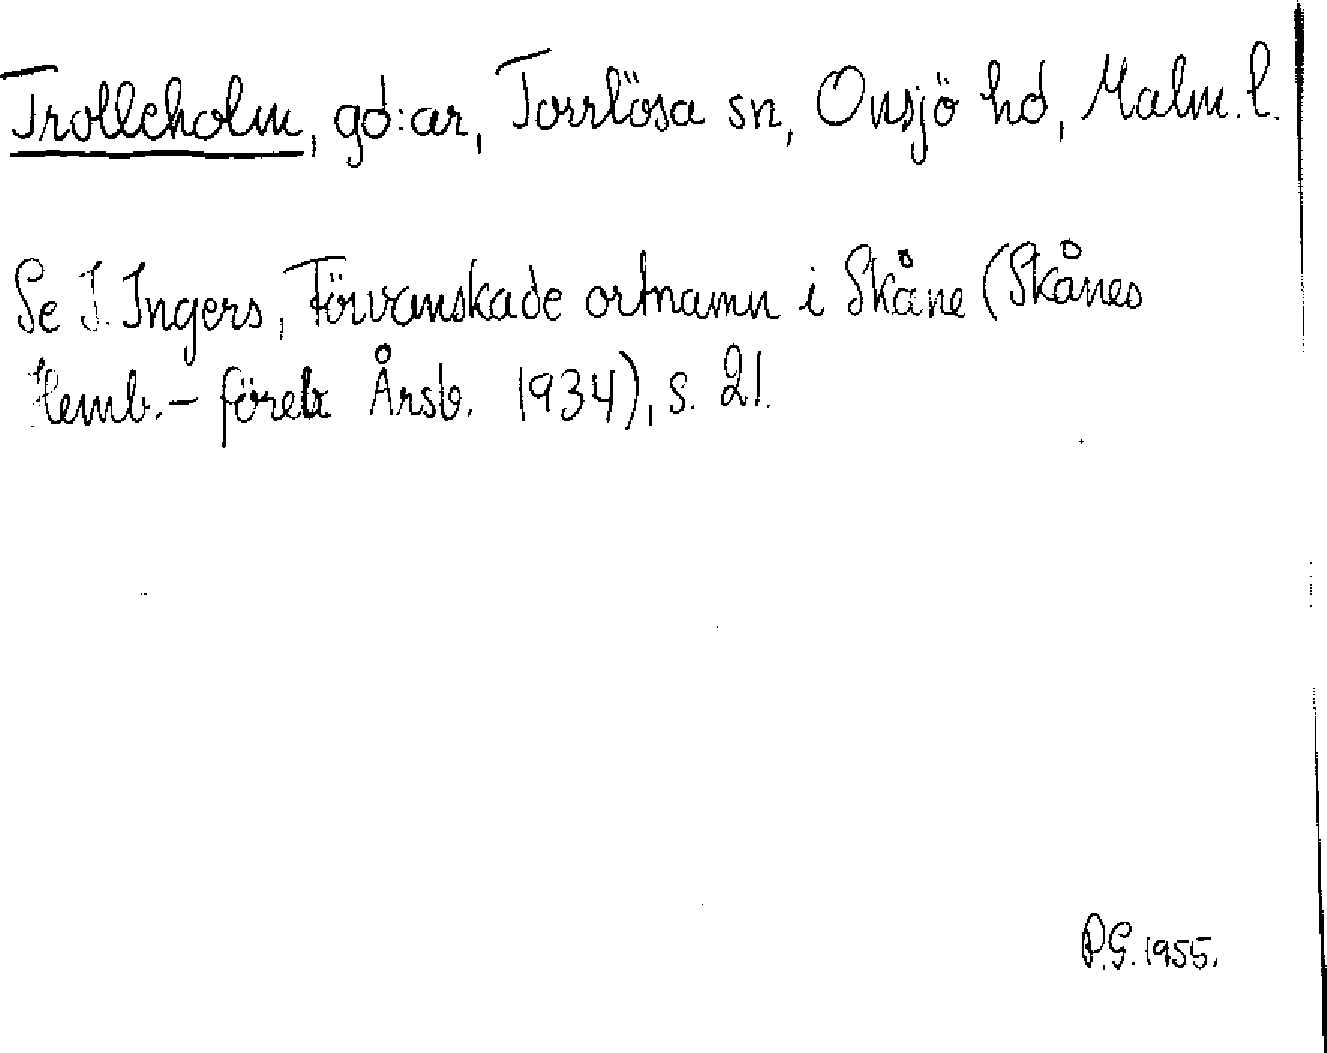 Trolleholm, gd:ar, Torrlösa sn, Onsjö hd, Malm. l.
Se I. Ingers, Förvanskade ortnamn i Skåne (Skånes
Hemb.- föreb Årsb. 1934), s. 21.
P.G. 1955.